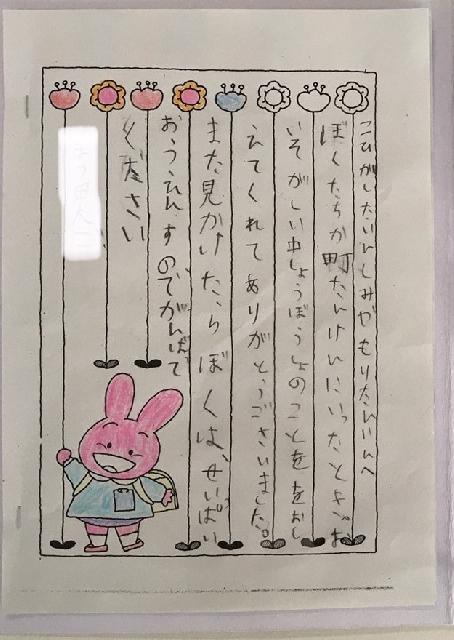 こひがしたいいんしみずもりたいいんへ
ぼくたちが町たんけんにいったとき、お
いそがしい中しょうぼうしょのことををおし
えてくれてありがとうございました。
また見かけたらぼくは、せいぱい
おうえんすのでがんばて
ください